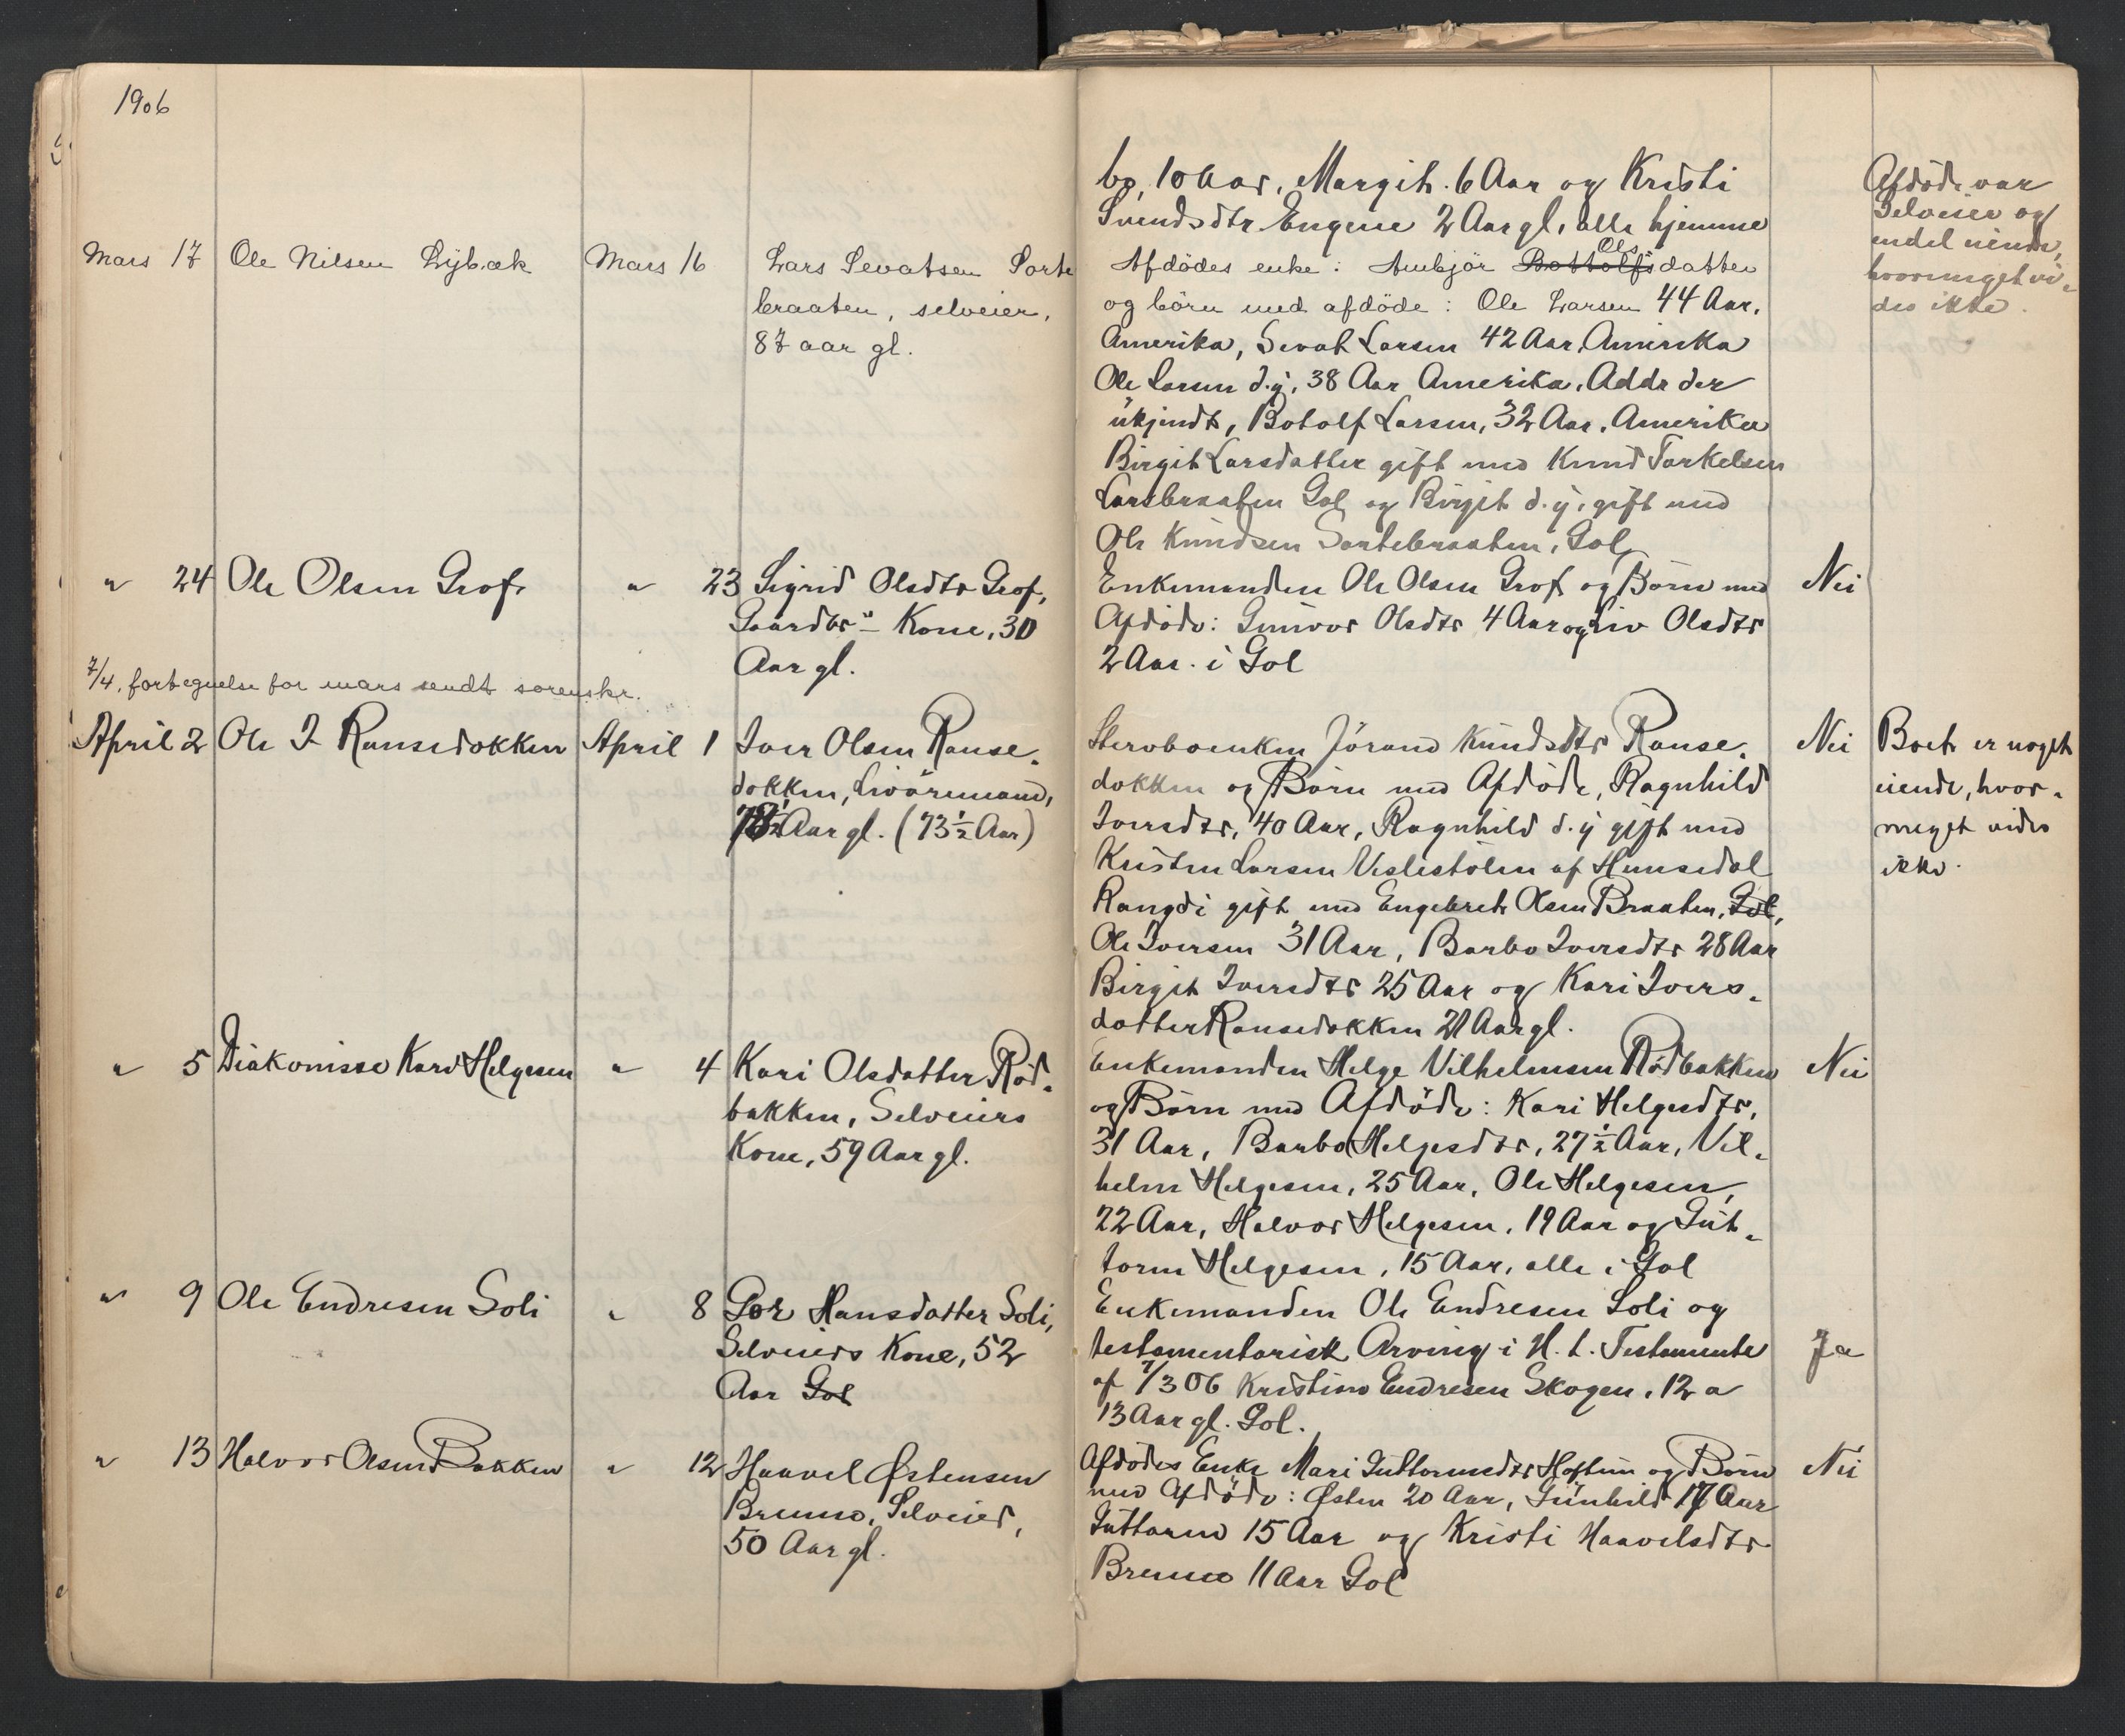 1906
bo, 10 Aar, Margit 6 Aar og Kristi
Svendsdtr Engene 2 Aar gl, alle hjemme
Mars 17 Ole Nilsen Lybæk Mars 16 Lars Sevatsen Sorte
braaten, selveier,
87 aar gl.
Afdödes enke: Ambjör Bottolfs Ols datter
og börn med afdöde: Ole Larsen 44 Aar,
Amerika, Sevat Larsen 42 Aar Amerika
Ole Larsen d.y, 38 Aar Amerika, Adde der
ukjendt, Botolf Larsen, 32 Aar, Amerika
Birgit Larsdatter gift med Knud Torkelsen
Larsbraaten Gol og Birgit d.y. gift med
Ole Knudsen Sortebraaten, Gol
Afdöde var
Selveier og
endel eiende,
hvormeget vi-
des ikke.
" 24 Ole Olsen Grof " 23 Sigrid Olsdtr Grof,
Gaardbr"- Kone, 30
Aar gl.
Enkemanden Ole Olsen Grof og Börn med
Afdöde: Gunvor Olsdtr 4 Aar og Liv Olsdtr
2 Aar. i Gol
Nei
7/4, fortegnelse for mars sendt sorenskr.
April 2 Ole I Ransedokken April 1 Iver Olsen Ranse-
dokken, Livöremand,
Aar gl. (73½ Aar)
Stervboenken Jörand Knudsdtr Ranse-
dokken og Börn med Afdöde, Ragnhild
Iversdtr, 40 Aar, Ragnhild d.y gift med
Kristen Larsen Veslestölen af Hemsedal
Rangdi gift med Engebret Olsen Braaten, Gol,
Ole Iversen 31 Aar, Barbo Iversdtr 28 Aar
Birgit Iversdtr 25 Aar og Kari Ivers-
datter Ransedokken 21 Aar gl.
Nei
Boet er noget
eiende, hvor-
meget vides
ikke.
" 5 Diakonisse Kari Helgesen " 4 Kari Olsdatter Röd-
bakken, Selveiers
Kone, 59 Aar gl.
Enkemanden Helge Vilhelmsen Rödbakken
og Börn med Afdöde: Kari Helgesdtr,
31 Aar, Barbo Helgesdtr, 27½ Aar, Vil-
helm Helgesen, 25 Aar, Ole Helgesen,
22 Aar, Halvor Helgesen, 19 Aar og Gut-
torm Helgesen, 15 Aar, alle i Gol
Nei
" 9 Ole Endresen Soli " 8 Gor Hansdatter Soli,
Selveiers Kone, 52
Aar Gol
Enkemanden Ole Endresen Soli og
testamentarisk Arving i H. t. Testamente
af 7/3 06 Kristine Endresen Skogen, 12 a
13 Aar gl. Gol.
Ja
" 13 Halvor Olsen Bakken " 12 Haavel Østensen
Brenno, Selveier,
50 Aar gl.
Afdödes Enke Mari Guttormsdtr Heftun og Börn
med Afdöde: Østen 20 Aar, Gunhild 17 Aar
Guttorm 15 Aar og Kristi Haavelsdtr
Brenno 11 Aar Gol
Nei